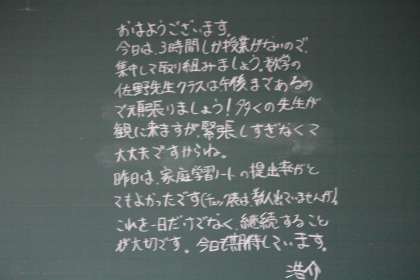 おはようございます。
今日は、3時間しか授業がないので、
集中して取り組みましょう。数学の
佐野先生クラスは午後まであるの
で頑張りましょう！多くの先生が
観に来ますが、緊張しすぎなくて
大丈夫ですからね。
昨日は、家庭学習ノートの提出率がと
てもよかったです(チェック表は数人出ていませんが)！
これを一日だけでなく、継続すること
が大切です。今日も期待しています。
浩介